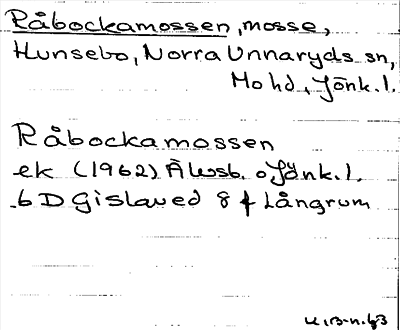 Råbockamossen, mosse,
Hunsebo, Norra Unnaryds sn,
Mo hd, Jönk.l.
Råbockamossen
ek (1962) Älvsb. o Jönk.l.
6 D Gislaved 8 f Långrum